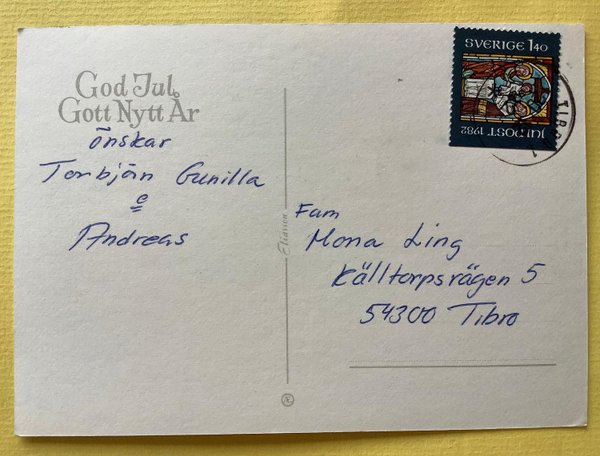 God Jul
Gott Nytt År
önskar
Torbjörn Gunilla
e
Andreas
Eliasson
SVERIGE 1.40
JULPOST 1982
TIBRO 1
Fam
Mona Ling
Källtorpsvägen 5
54300 Tibro